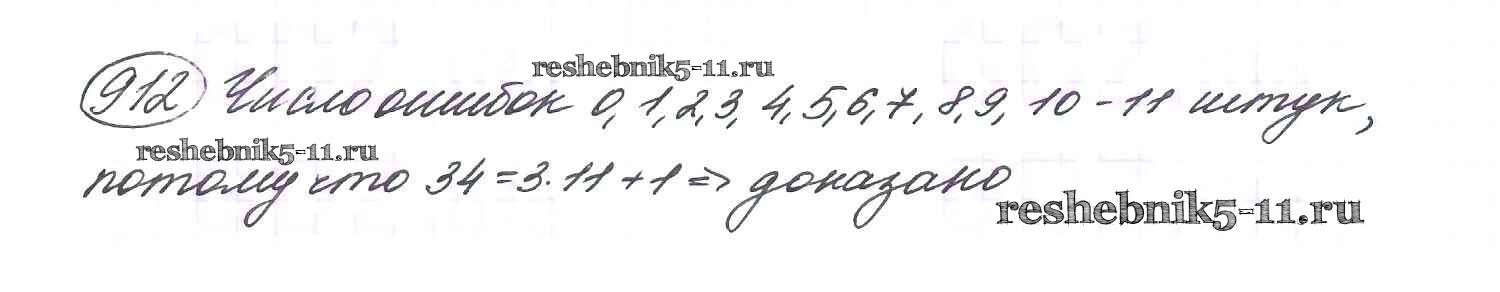 reshebnik5-11.ru
912 Число ошибок 0, 1, 2, 3, 4, 5, 6, 7, 8, 9, 10 - 11 штук,
reshebnik5-11.ru
потому что 34 = 3·11 + 1 => доказано
reshebnik5-11.ru